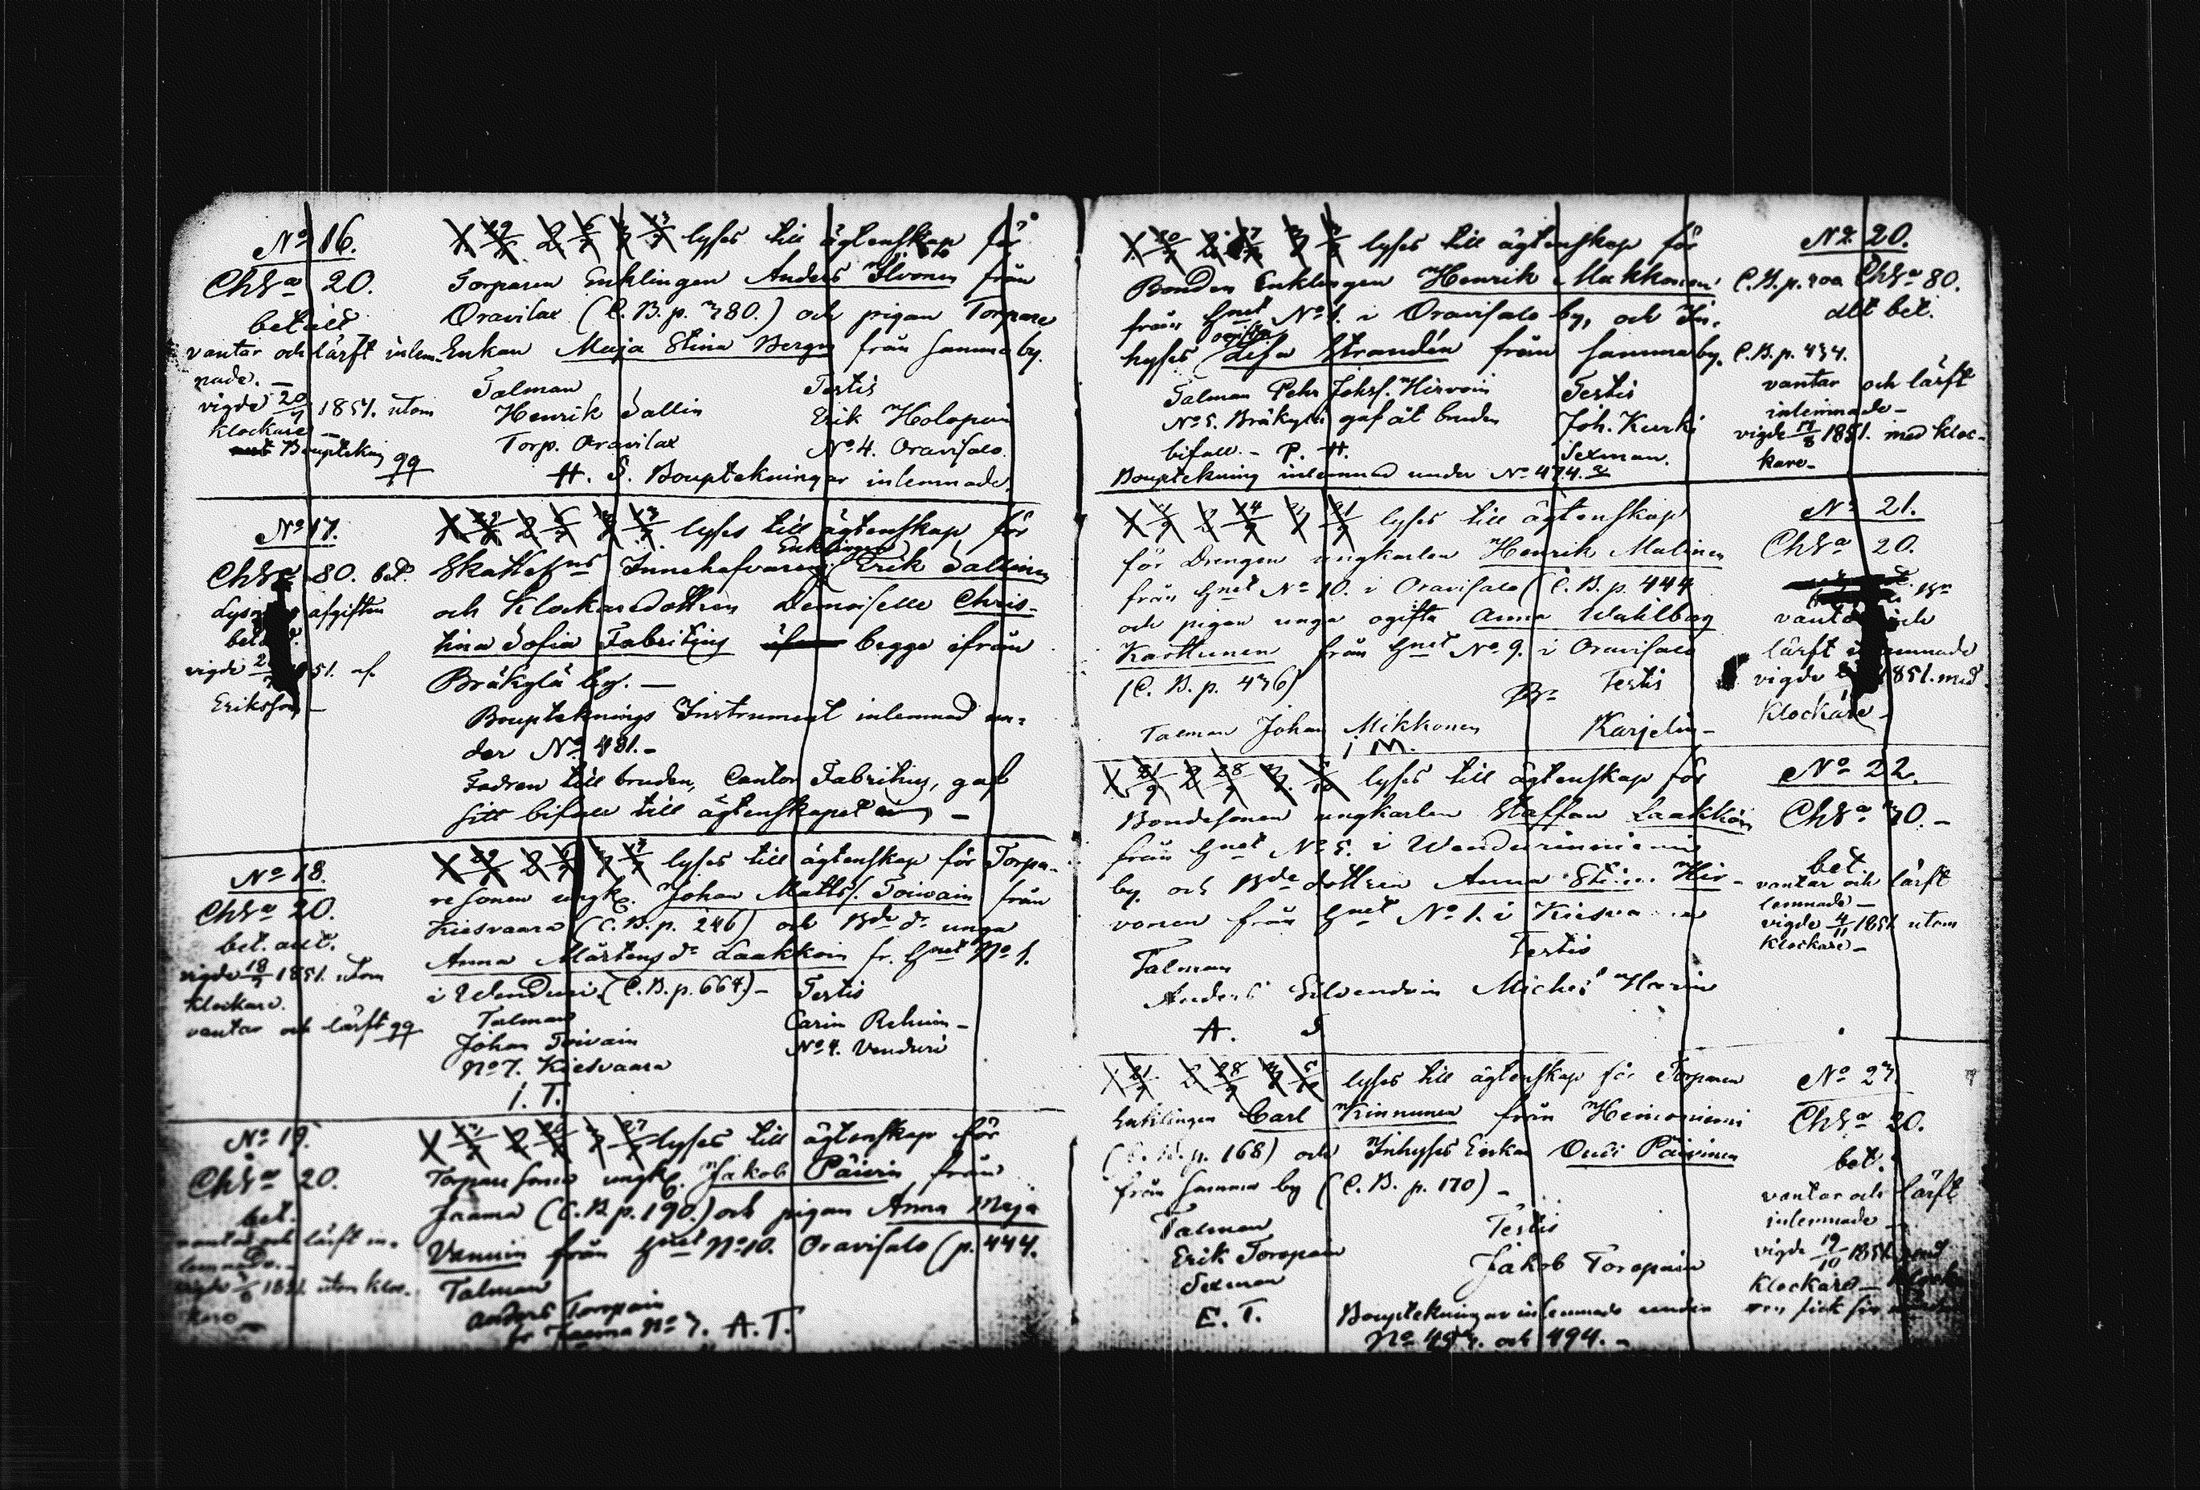 No 16.
Ch Sa 20.
betalt
vantar och lärft inlem-
nade. –
vigde 20/7 1851. utom
klockare –
Bouptekning
1 29/6 2 6/7 3 13/7 lyses till ägtenskap för
Torparen Enklingen Anders Ilvonen från
Oravilax (C.B.p. 380.) och pigan Torpare
Enkan Maja Stina Bergg från samma by.
Talman Testis
Henrik Sallin Erik Holopain
Torp. Oravilax No 4. Oravisalo.
H. S. Bouptekningar inlemnade.
No 17.
Ch Sa 80. bet.
Lysnings afgiften
betald.
vigde 1851. af
Eriksson –
1 29/6 2 6/7 3 13/7 lyses till ägtenskap för
Enklingen
Skattehns Innehafvaren Erik Sallinen
och Klockaredottren Demoiselle Chris-
tina Sofia Fabritius begge ifrån
Bräkylä by. –
Bouptecknings Instrument inlemnad un-
der No 481. –
Fadren till bruden, Cantor Fabritius, gaf
sitt bifall till ägtenskapet –
No 18.
Ch Sa 20.
bet. ant.
vigde 18/7 1851. utom
klockare.
vantar och lärft
1 29/6 2 6/7 3 13/7 lyses till ägtenskap för Torpa-
resonen ungk. Johan Matts s. Toivain från
Kiesvaara (C.B.p. 246) och Bde dr unga
Anna Mårtens dr Laakkoin fr. Hnet No 1.
i Wenduri (C.B.p. 664.) – Testis
Talman Carin Rehuin –
Johan Toivain No 4. Venduri
No 7. Kiesvaara
I. T.
No 19.
Ch Sa 20.
bet.
vantar och lärft in-
lemnade. –
vigde 1851. utom kloc-
kare –
1 13/7 2 20/7 3 27/7 lyses till ägtenskap för
Torpare sonen ungk. Jakob Päivin från
Jaama (C.B.p. 190.) och pigan Anna Maja
Vänuin från Hnet No 10. Oravisalo (p. 444.
Talman
Anders Toropain
fr Jaama No 3. A.T.
lyses till ägtenskap för
Bonden Enklingen Henrik Makkonen
från Hnet No 1. i Oravisalo by, och In-
ogifta
hyses Lisa Strandén från samma by.
Talman Pehr Johs s. Hirvoin Testis
No 5. Bräkylä gaf åt bruden Joh. Kurki
bifall. – P. H. Sexman.
Bouptekning inlemnad under No 474.
No 20.
C.B.p. Ch Sa 80.
allt bet.
C.B.p. 434.
vantar och lärft
inlemnade –
vigde 17/8 1851. med kloc-
kare –
1 7/9 2 14/9 3 21/9 lyses till ägtenskap
för Drengen ungkarlen Henrik Malinen
från Hnet No 10. i Oravisalo (C.B.p. 444
och pigan unga ogifta Anna Wahlborg
Karttunen från Hnet No 9. i Oravisalo
(C.B.p. 436) Testis
Talman Johan Mikkonen Karjelin –
I M.
No 21.
Ch Sa 20.
vantar och
lärft inlemnade
vigde 1851. med
klockare –
1 21/9 2 28/9 3 5/10 lyses till ägtenskap för
Bondesonen ungkarlen Staffan Laakkoin
från Hnet No 5. i Wendurinniemi
by och Bde dottren Anna Stina Hir-
vonen från Hnet No 1. i Kiesvaara
Talman Testis
Anders Silvendoin Michel Harin
A. S
No 22.
Ch Sa 30. –
bet.
vantar och lärft
lemnade –
vigde 4/11 1851 utom
klockare –
1 21/9 2 28/9 3 5/10 lyses till ägtenskap för Torparen
Enklingen Carl Kinnunen från Heinoniemi
(C.B.p. 168) och Inhyses Enkan Outi Päivinen
från samma by (C.B.p. 170) –
Talman Testis
Erik Toropain Jakob Toropain
Sexman
E. T. Bouptekningar inlemnade under
No 493. och 494. –
No 23.
Ch Sa 20.
bet.
vantar och lärft
inlemnade –
vigde 19/10 1851 med
klockare –